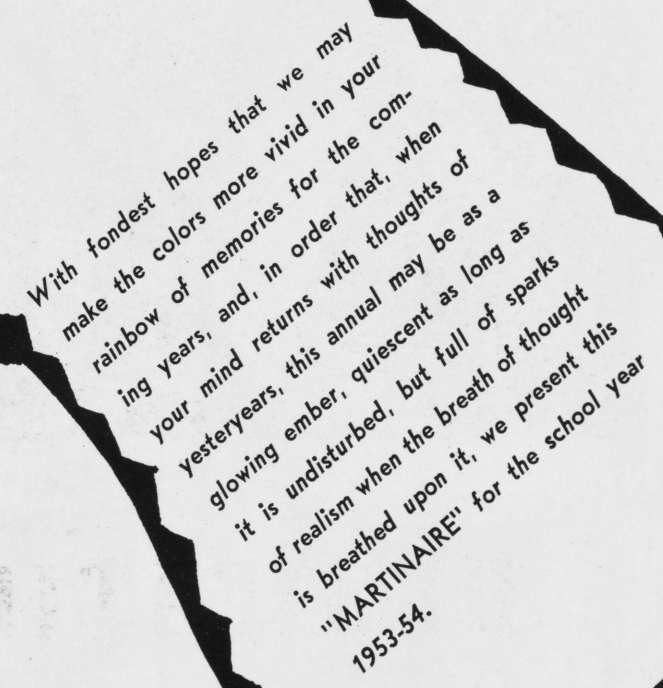 With fondest hopes that we may
make the colors more vivid in your
rainbow of memories for the com-
ing years, and, in order that, when
your mind returns with thoughts of
yesteryears, this annual may be as a
glowing ember, quiescent as long as
it is undisturbed, but full of sparks
of realism when the breath of thought
is breathed upon it, we present this
"MARTINAIRE" for the school year
1953-54.